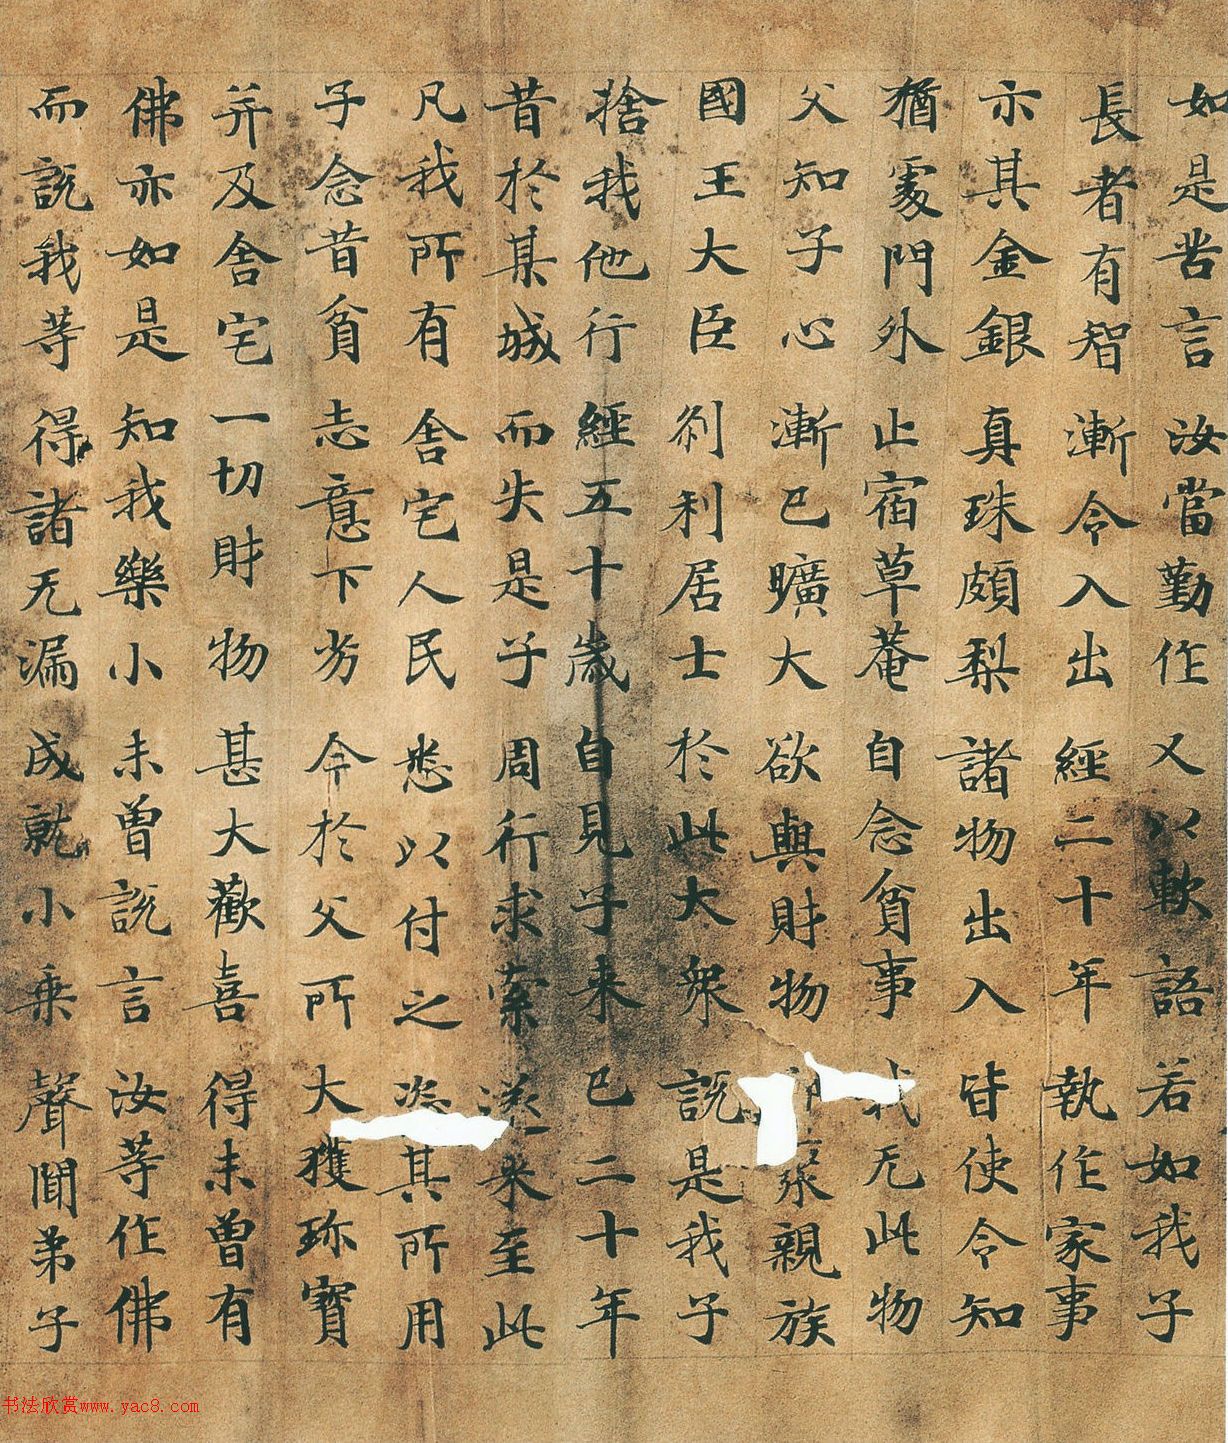 如是苦言 汝當勤作 又以軟語 若如我子
長者有智 漸令入出 經二十年 執作家事
示其金銀 真珠頗梨 諸物出入 皆使令知
猶處門外 止宿草菴 自念貧事 我无此物
父知子心 漸已曠大 欲與財物 聚親族
國王大臣 刹利居士 於此大衆 說是我子
捨我他行 經五十歲 自見子来 已二十年
昔於某城 而失是子 周行求索 遂来至此
凡我所有 舍宅人民 悉以付之 恣其所用
子念昔貧 志意下劣 今於父所 大獲珎寶
并及舍宅 一切財物 甚大歡喜 得未曾有
佛亦如是 知我樂小 未曾說言 汝等作佛
而說我等 得諸无漏 成就小乗 聲聞弟子
书法欣赏www.yac8.com